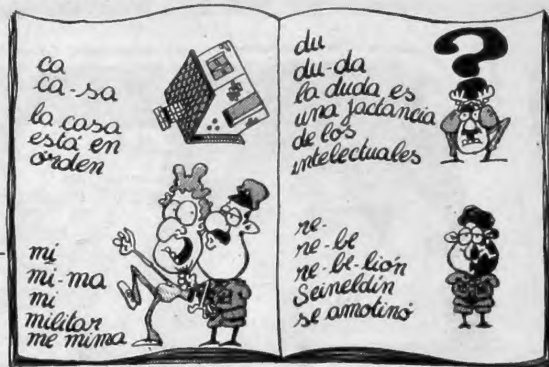 ca
ca-sa
la casa
está en
orden
mi
mi-ma
mi
militar
me mima
du
du-da
la duda es
una jactancia
de los
intelectuales
?
re-
re-be
re-be-lión
Seineldín
se amotinó